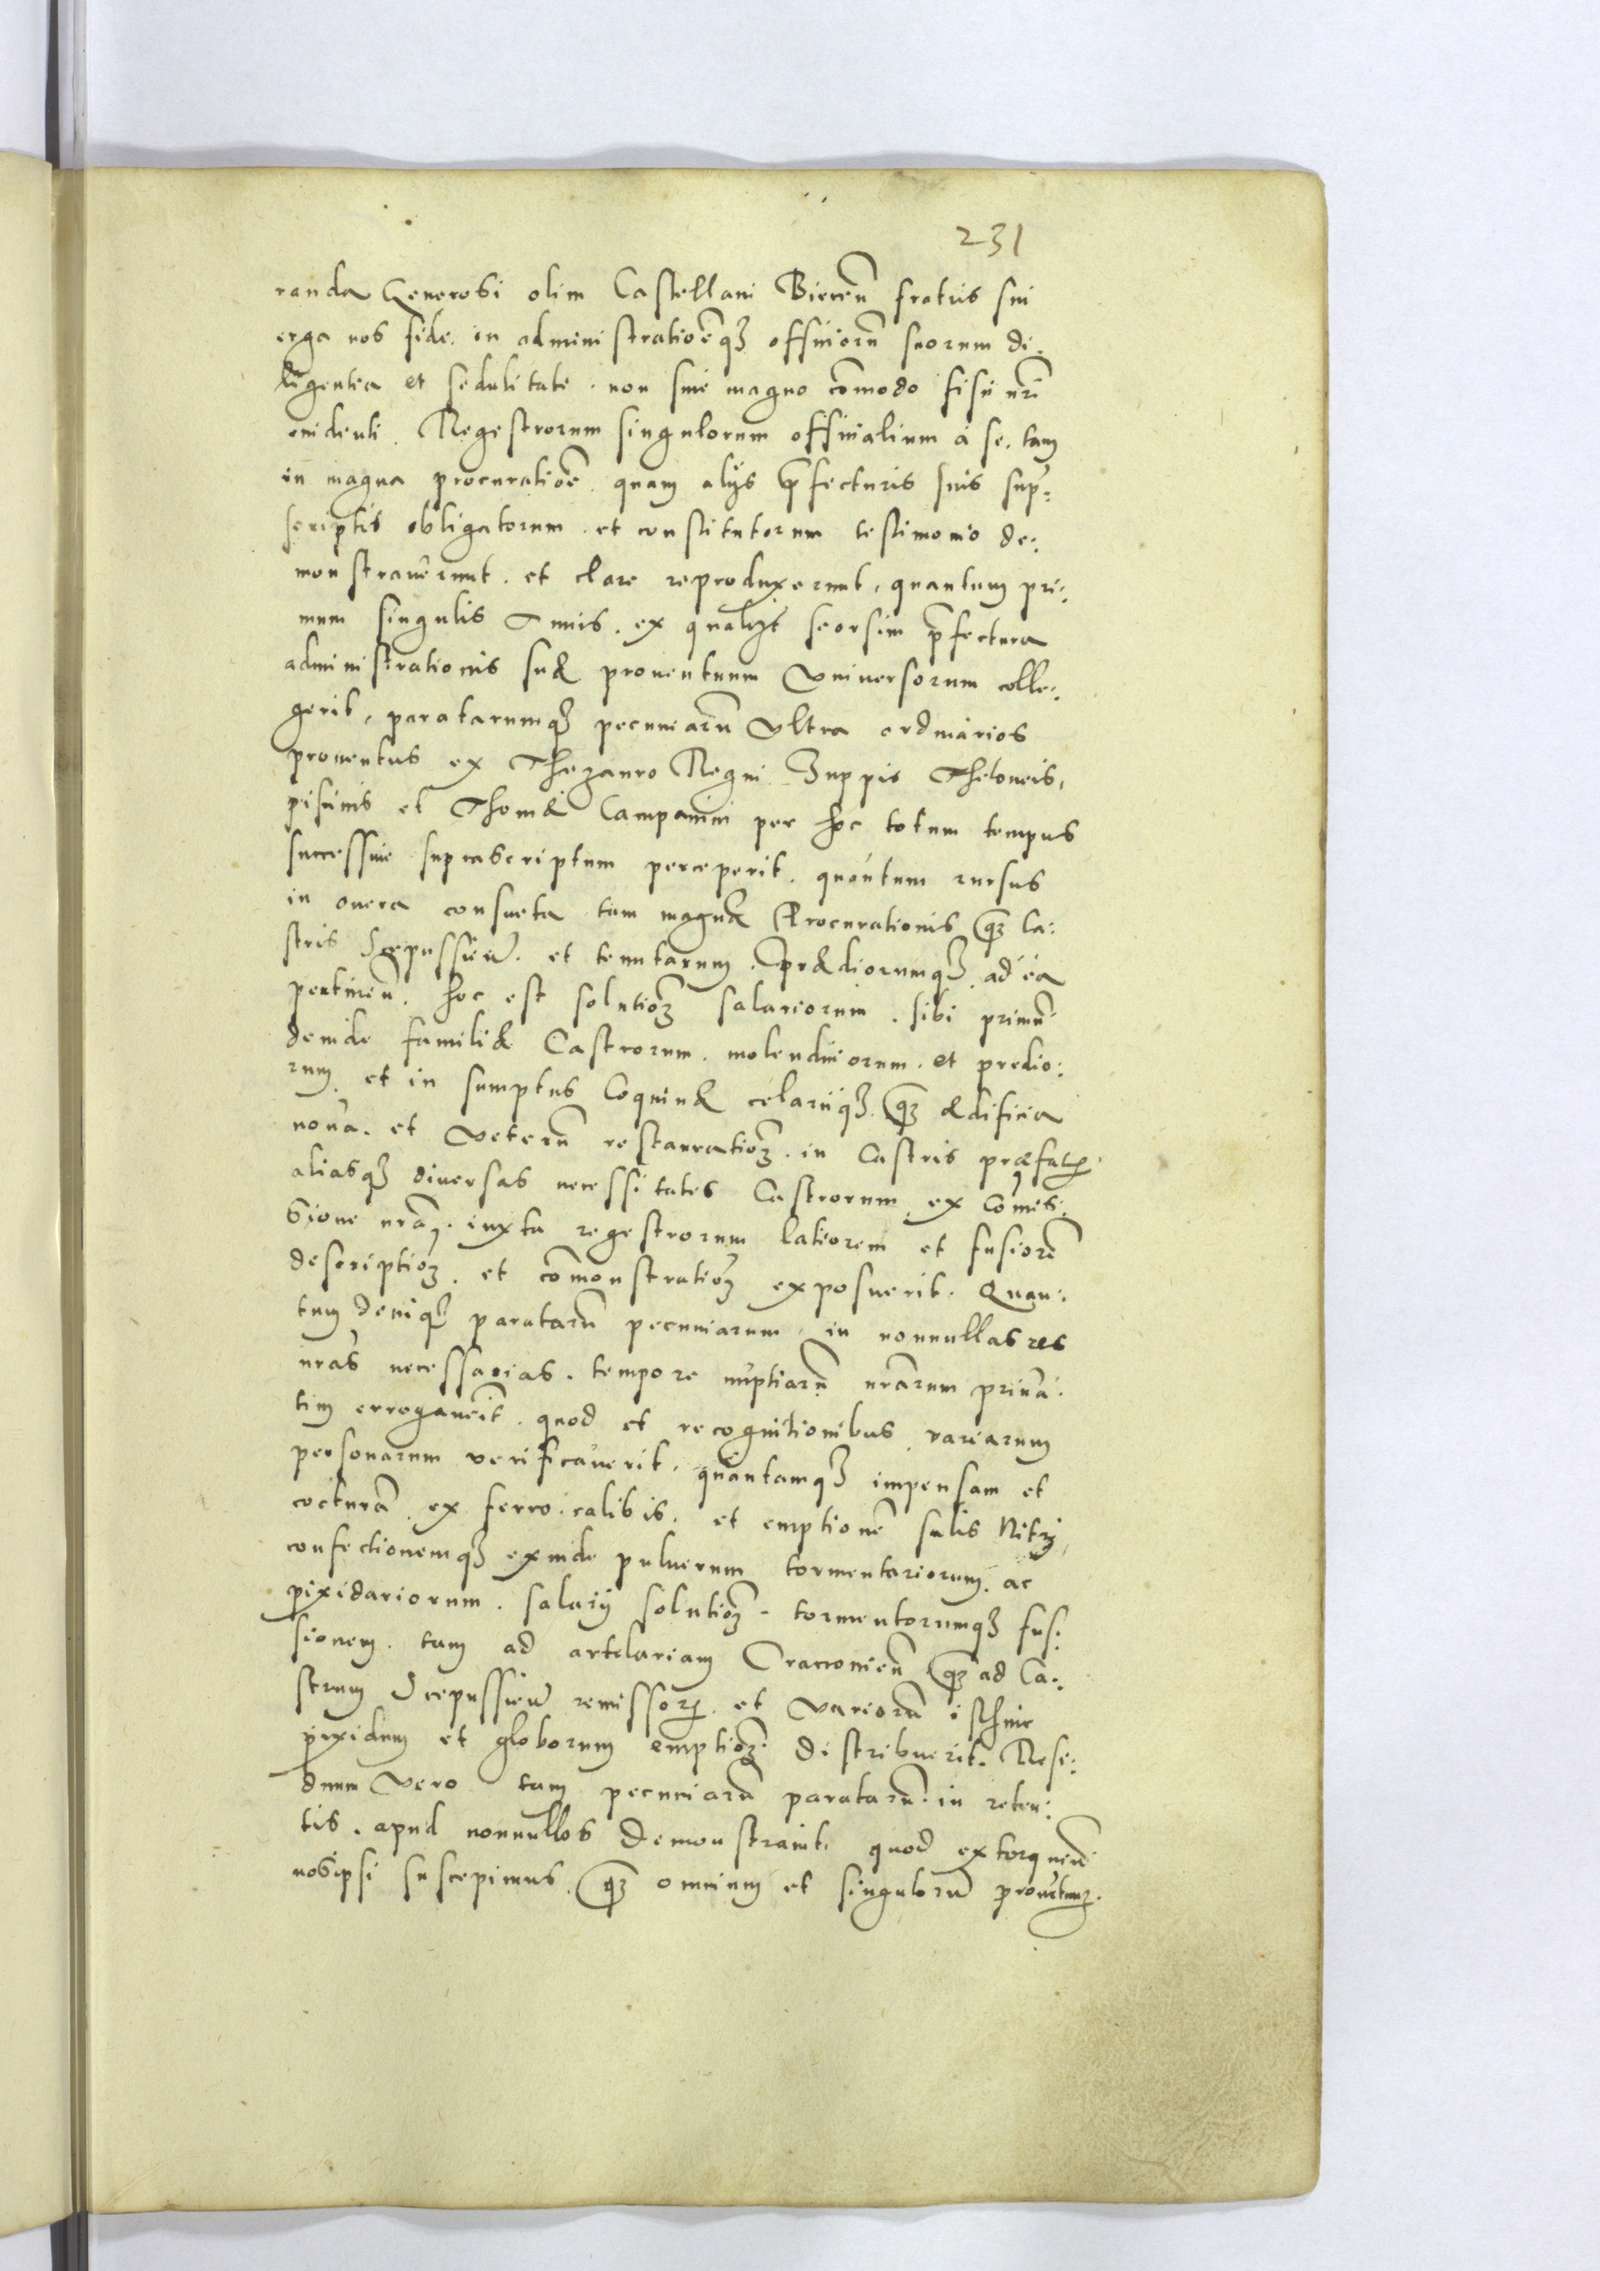 231
randa Generosi olim Castellani Biecen̄ fratris sui
erga nos fide. in administratioēq₃ officiorū suorum di-
ligentia et sedulitate. non sine magno cōmodo fisci nr̄i
euidenti. Regestrorum singulorum officialium à se. tam
in magna procuratiōe. quam alijs p̄fecturis suis sup̄-
scriptis obligatorum. et constitutorum testimonio de-
monstrauerunt. et clare reproduxerunt. quantum pri-
mum singulis Annis. ex qualibet seorsim p̄fectura
administrationis suæ prouentuum Vniuersorum colle-
gerit, paratarumq₃ pecuniarū Vltra ordinarios
prouentus ex Thezauro Regni Zuppis Theloneis,
piscinis et Thomæ Campanini per hoc totum tempus
successiue suprascriptum perceperit. quantum rursus
in onera consueta tam magnæ Procurationis q̄₃ Ca-
stris Scepussien̄. et tenutarum. prædiorumq₃ ad ea
pertinen̄. hoc est solutiōꝫ salariorum. sibi primū
deinde familiæ Castrorum. molendinorum. et predio-
rum. et in sumptus Coquinæ celarijq₃. q̄₃ ædificia
noua. et Veterū restauratiōꝫ. in Castris præfatꝭ
aliasq₃ diuersas necessitates Castrorum ex Cōmis-
sione nr̄a. iuxta regestrorum latiorem et fusiorē
descriptiōꝫ. et cōmonstratiōꝫ exposuerit. Quan-
tum deniq₃ paratarū pecuniarum in nonnullas res
nr̄as necessarias. tempore nuptiarū nr̄arum priua-
tim errogauerit. quod et recognitionibus variarum
personarum verificauerit. quantamq₃ impensam et
cocturā. ex ferro. calibis. et emptionē salis Nitri,
confectionemq₃ exinde puluerum tormentariorum. ac
pixidariorum. salarij solutiōꝫ. tormentorumq₃ fus-
sionem. tam ad artelariam Cracouien̄ q̄₃ ad Ca-
strum Scepussien̄ remissorꝝ. et Variorū
pixidum et globorum emptiōꝫ. distribuerit. Resi-
duum Vero tam pecuniarū paratarū. in reten-
tis. apud nonnullos demonstrauit. quod extorquen̄
nosipsi suscepimus. q̄₃ omnium et singulorū prouētuuꝫ.